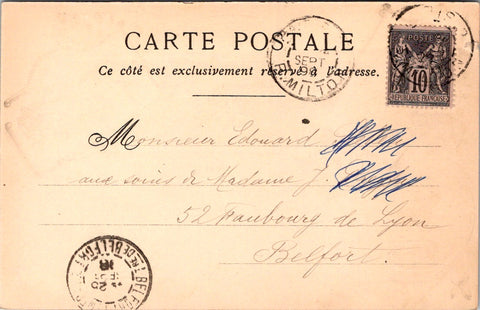 CARTE POSTALE
Ce côté est exclusivement réservé à l'adresse.
POSTES
10
REPUBLIQUE FRANÇAISE
SEPT
R. MILTON
Monsieur Edouard
aux soins de Madame J.
52 Faubourg de Lyon
Belfort.
BELFORT
TRE DE BELFORT